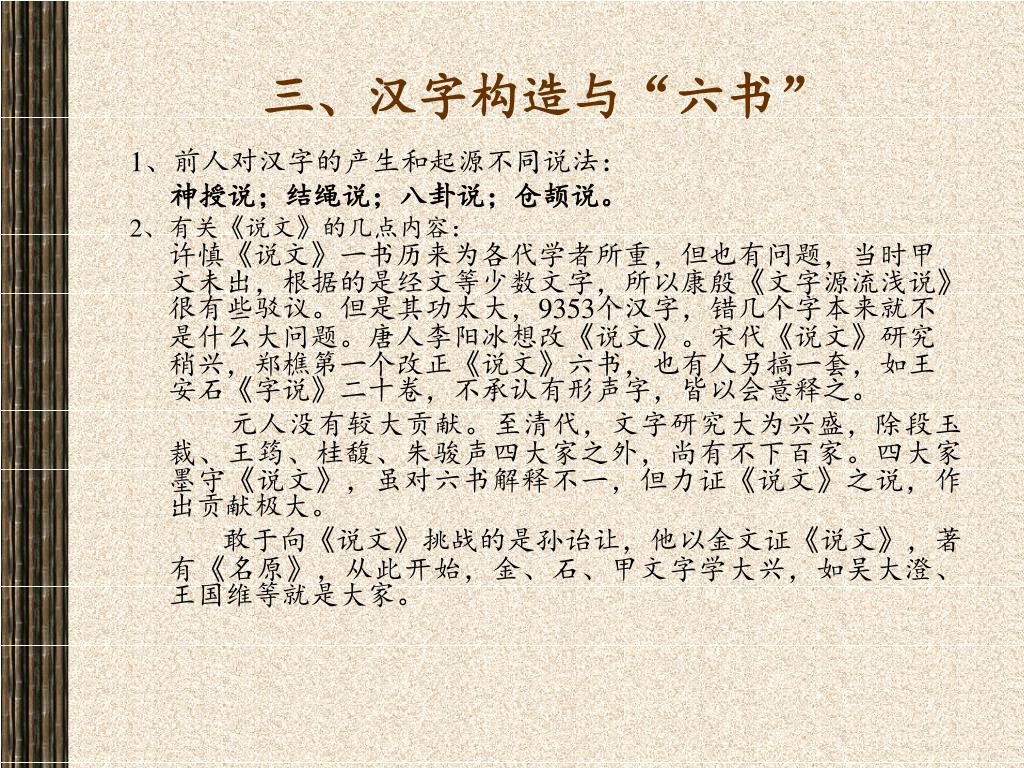 三、汉字构造与“六书”
1、前人对汉字的产生和起源不同说法：
神授说；结绳说；八卦说；仓颉说。
2、有关《说文》的几点内容：
许慎《说文》一书历来为各代学者所重，但也有问题，当时甲
文未出，根据的是经文等少数文字，所以康殷《文字源流浅说》
很有些驳议。但是其功太大，9353个汉字，错几个字本来就不
是什么大问题。唐人李阳冰想改《说文》。宋代《说文》研究
稍兴，郑樵第一个改正《说文》六书，也有人另搞一套，如王
安石《字说》二十卷，不承认有形声字，皆以会意释之。
元人没有较大贡献。至清代，文字研究大为兴盛，除段玉
裁、王筠、桂馥、朱骏声四大家之外，尚有不下百家。四大家
墨守《说文》，虽对六书解释不一，但力证《说文》之说，作
出贡献极大。
敢于向《说文》挑战的是孙诒让，他以金文证《说文》，著
有《名原》，从此开始，金、石、甲文字学大兴，如吴大澄、
王国维等就是大家。